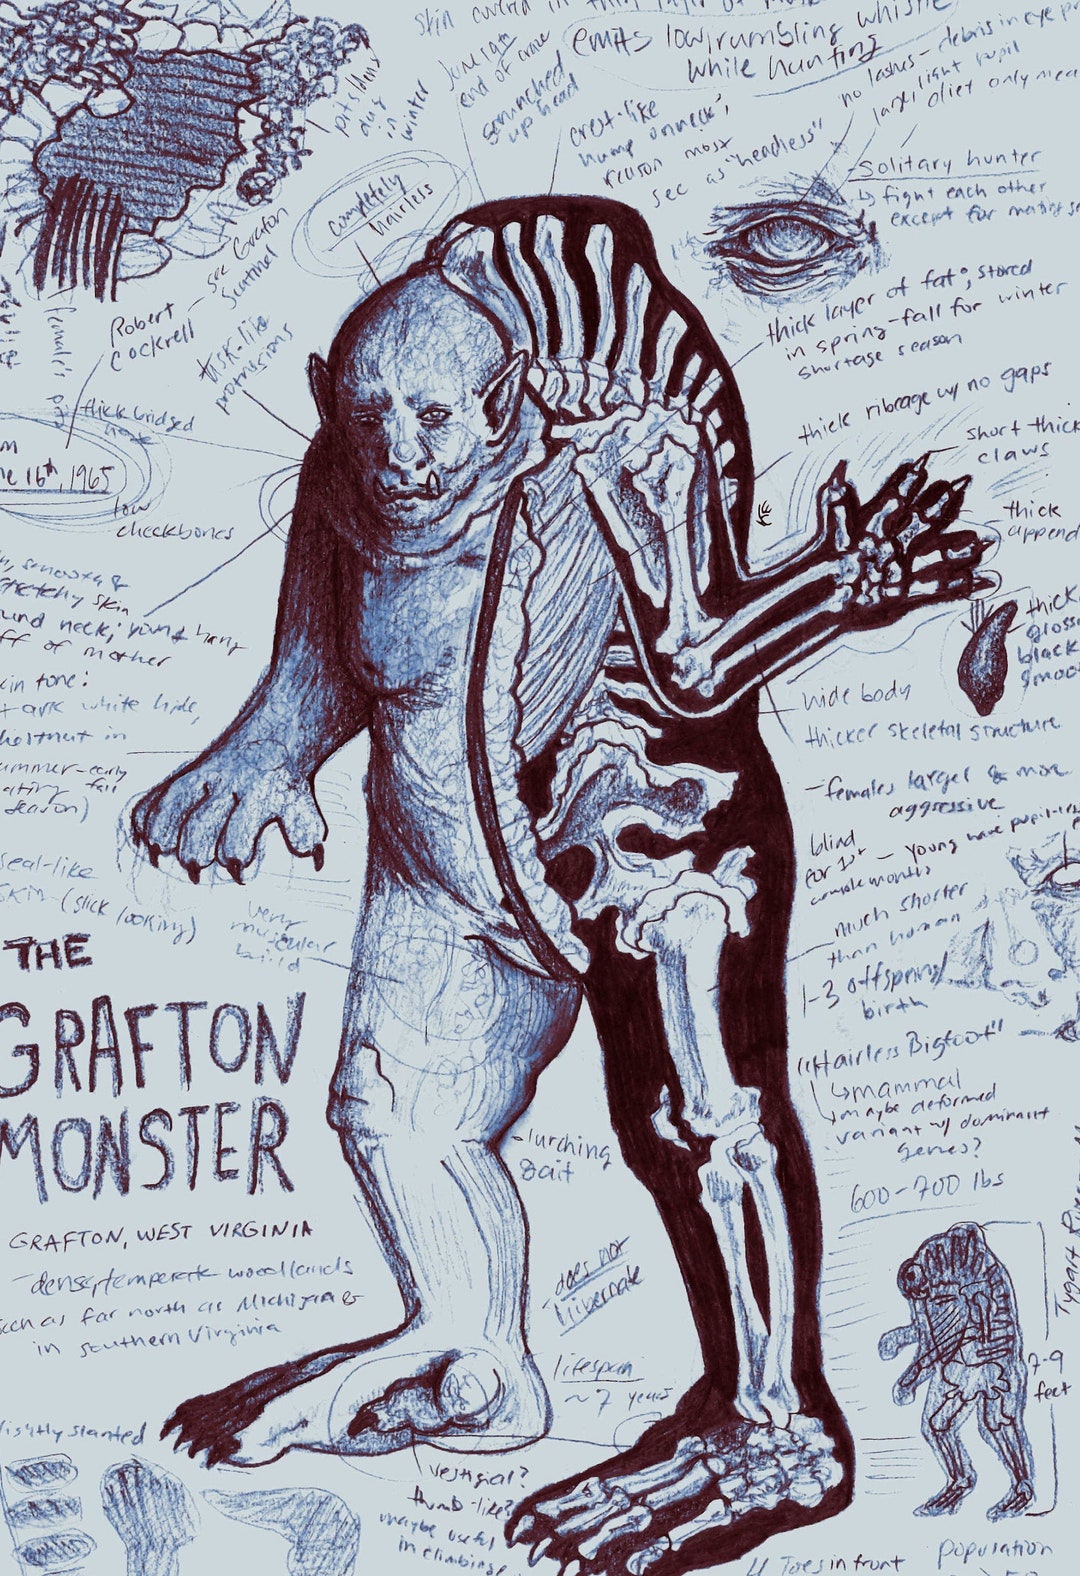 skin covered in thin layer of
emits low, rumbling whistle
while hunting
no lashes - debris in eye
large, light pupil
diet only
Solitary hunter
↳ fight each other
except for mating
pits/dens
dug
in
winter
end of
scrunched
up head
crest-like
hump on neck;
reason most
see as "headless"
completely
hairless
see Grafton
Sentinel
Robert
Cockrell
female's
tusk-like
protrusions
thick bridged
nose
16th, 1965
low
cheekbones
thick layer of fat; stored
in spring-fall for winter
shortage season
thick ribcage w/ no gaps
short thick
claws
thick
append
thick
gloss
black
smoo
smooth &
stretchy skin
around neck; young hang
off of mother
skin tone:
stark white hide,
chestnut in
summer-early
fall
season)
seal-like
skin (slick looking)
very
muscular
build
wide body
thicker skeletal structure
- females larger & more
aggressive
blind
for 1st
couple months
- young have pupil-less
much shorter
than human
1-3 offspring/
birth
"Hairless Bigfoot"
↳ mammal
↳ maybe deformed
variant w/ dominant
genes?
600-700 lbs
THE
GRAFTON
MONSTER
GRAFTON, WEST VIRGINIA
- dense, temperate woodlands
seen as far north as Michigan &
in southern Virginia
- lurching
gait
- does not
hibernate
lifespan
~7 years
7-9
feet
Tygart River
slightly slanted
vestigial?
thumb-like?
maybe useful
in climbing?
4 Toes in front
population